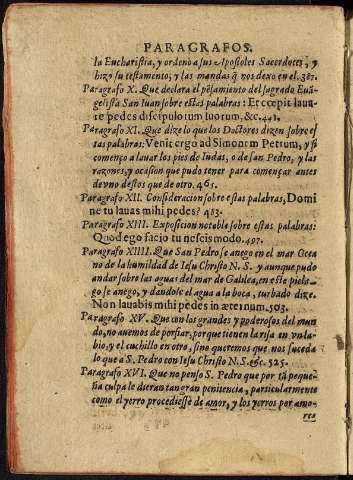 PARAGRAFOS.
la Eucharistia, y ordenò a sus Apostoles Sacerdotes, y
hizo su testamento, y las mandas q̃ nos dexo en el. 387.
Paragrafo X. Que declara el pẽsamiento del sagrado Euã-
gelista San Iuan sobre estas palabras: Et cœpit laua-
re pedes discipulorum suorum, &c. 441.
Paragrafo XI. Que dize lo que los Doctores dizen sobre es
tas palabras: Venit ergo ad Simonem Petrum, y si
començo a lauar los pies de Iudas, o de san Pedro, y las
razones, y ocasion que pudo tener para començar antes
de vno destos que de otro. 465.
Paragrafo XII. Consideracion sobre estas palabras, Domi
ne tu lauas mihi pedes? 483.
Paragrafo XIII. Exposicion notable sobre estas palabras:
Quod ego facio tu nescis modo. 497.
Paragrafo XIIII. Que San Pedro se anego en el mar Ocea
no de la humildad de Iesu Christo N. S. y aunque pudo
andar sobre las aguas del mar de Galilea, en este piela-
go se anego, y dandole el agua a la boca, turbado dize.
Non lauabis mihi pedes in æternum. 503.
Paragrafo XV. Que con los grandes y poderosos del mun
do, no auemos de porfiar, porque tienen la risa en vn la-
bio, y el cuchillo en otro, sino queremos que nos suceda
lo que a S. Pedro con Iesu Christo N. S. &c. 525.
Paragrafo XVI. Que no penso S. Pedro que por tã peque-
ña culpa le dieran tan gran penitencia, particularmente
como el yerro procediesse de amor, y los yerros por amo-
res